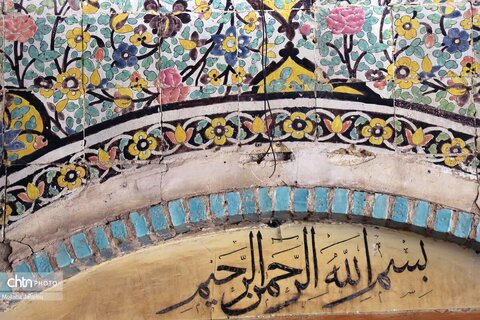 بسم الله الرحمن الرحیم
chtn PHOTO